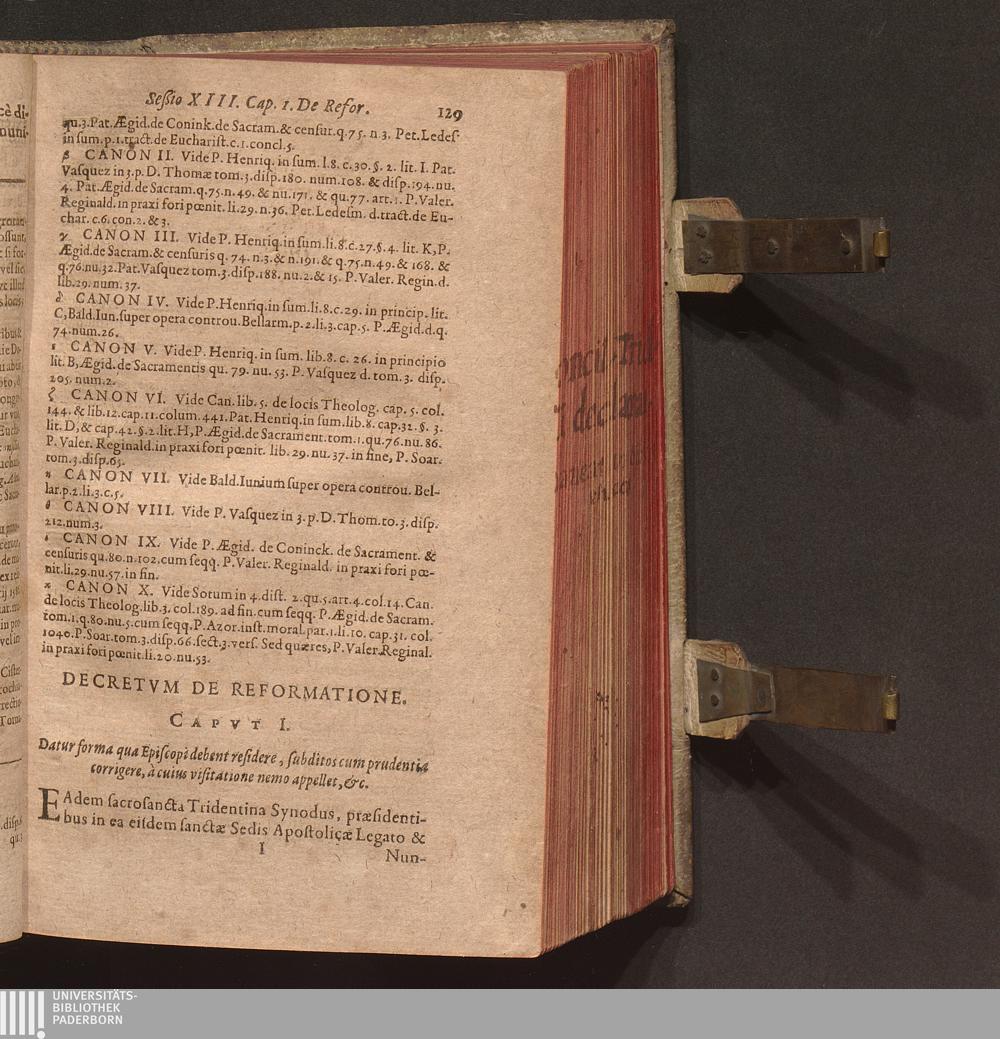 Seſsio XIII. Cap. 1. De Refor. 129
qu.3. Pat. Ægid. de Conink. de Sacram. & cenſur. q. 75. n 3. Pet. Ledeſ
in ſum. p. 1. tract. de Euchariſt. c. 1. concl. 5.
β CANON II. Vide P. Henriq. in ſum. l. 8. c. 30. §. 2. lit. I. Pat.
Vaſquez in 3. p. D. Thomæ tom. 3. diſp. 180. num. 108. & diſp. 194. nu.
4. Pat. Ægid. de Sacram. q. 75. n. 49. & nu. 171. & qu. 77. art. 1. P. Valer.
Reginald. in praxi fori pœnit. li. 29. n. 36. Pet. Ledeſm. d. tract. de Eu-
char. c. 6. con. 2. & 3.
γ CANON III. Vide P. Henriq. in ſum. li. 8. c. 27. §. 4. lit. K, P.
Ægid. de Sacram. & cenſuris q. 74. n. 3. & n. 191. & q. 75. n. 49. & 168. &
q. 76. nu. 32. Pat. Vaſquez tom. 3. diſp. 188. nu. 2. & 15. P. Valer. Regin. d.
lib. 29. num. 37.
δ CANON IV. Vide P. Henriq. in ſum. li. 8. c. 29. in princip. lit.
C, Bald. Iun. ſuper opera controu. Bellarm. p. 2. li. 3. cap. 5. P. Ægid. d. q.
74. num. 26.
ε CANON V. Vide P. Henriq. in ſum. lib. 8. c. 26. in principio
lit. B, Ægid. de Sacramentis qu. 79. nu. 53. P. Vaſquez d. tom. 3. diſp.
205. num. 2.
ζ CANON VI. Vide Can. lib. 5. de locis Theolog. cap. 5. col.
144. & lib. 12. cap. 11. colum. 441. Pat. Henriq. in ſum. lib. 8. cap. 32. §. 3.
lit. D, & cap. 42. §. 2. lit. H, P. Ægid. de Sacrament. tom. 1. qu. 76. nu. 86.
P. Valer. Reginald. in praxi fori pœnit. lib. 29. nu. 37. in fine, P. Soar.
tom. 3. diſp. 65.
η CANON VII. Vide Bald. Iunium ſuper opera controu. Bel-
lar. p. 2. li. 3. c. 5.
θ CANON VIII. Vide P. Vaſquez in 3. p. D. Thom. to. 3. diſp.
212. num. 3.
ι CANON IX. Vide P. Ægid. de Coninck. de Sacrament. &
cenſuris qu. 80. n. 102. cum ſeqq. P. Valer. Reginald. in praxi fori pœ-
nit. li. 29. nu. 57. in fin.
κ CANON X. Vide Sotum in 4. diſt. 2. qu. 5. art. 4. col. 14. Can.
de locis Theolog. lib. 3. col. 189. ad fin. cum ſeqq. P. Ægid. de Sacram.
tom. 1. q. 80. nu. 5. cum ſeqq. P. Azor. inſt. moral. par. 1. li. 10. cap. 31. col.
1040. P. Soar. tom. 3. diſp. 66. ſect. 3. verſ. Sed quæres, P. Valer. Reginal.
in praxi fori pœnit. li. 20. nu. 53.
DECRETVM DE REFORMATIONE.
CAPVT I.
Datur forma qua Epiſcopi debent reſidere, ſubditos cum prudentia
corrigere, à cuius viſitatione nemo appellet, &c.
EAdem ſacroſancta Tridentina Synodus, præſidenti-
bus in ea eiſdem ſanctæ Sedis Apoſtolicæ Legato &
I Nun-
UNIVERSITÄTS-
BIBLIOTHEK
PADERBORN